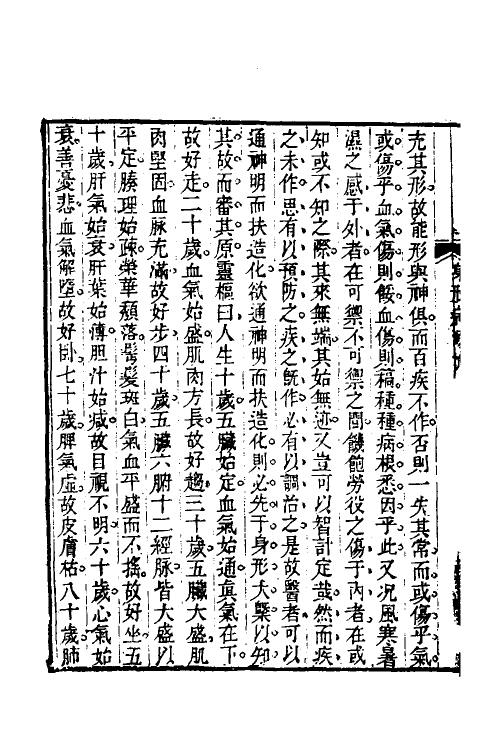 充其形故能形與神俱而百疾不作否則一失其常而或傷乎氣
或傷乎血氣傷則餒血傷則稿種種病根悉因乎此又况風寒暑
濕之感于外者在可禦不可禦之間饑飽勞役之傷于內者在或
知或不知之際其來無端其始無迹又豈可以智計定哉然而疾
之未作思有以預防之疾之旣作必有以調治之是故醫者可以
通神明而扶造化欲通神明而扶造化則必先于身形大槩以知
其故而審其原靈樞曰人生十歲五臟始定血氣始通眞氣在下
故好走二十歲血氣始盛肌肉方長故好趨三十歲五臟大盛肌
肉堅固血脉充滿故好步四十歲五臟六腑十二經脉皆大盛以
平定腠理始疎榮華頹落鬂髮斑白氣血平盛而不搖故好坐五
十歲肝氣始衰肝葉始薄胆汁始减故目視不明六十歲心氣始
衰善憂悲血氣解墮故好卧七十歲脾氣虛故皮膚枯八十歲肺